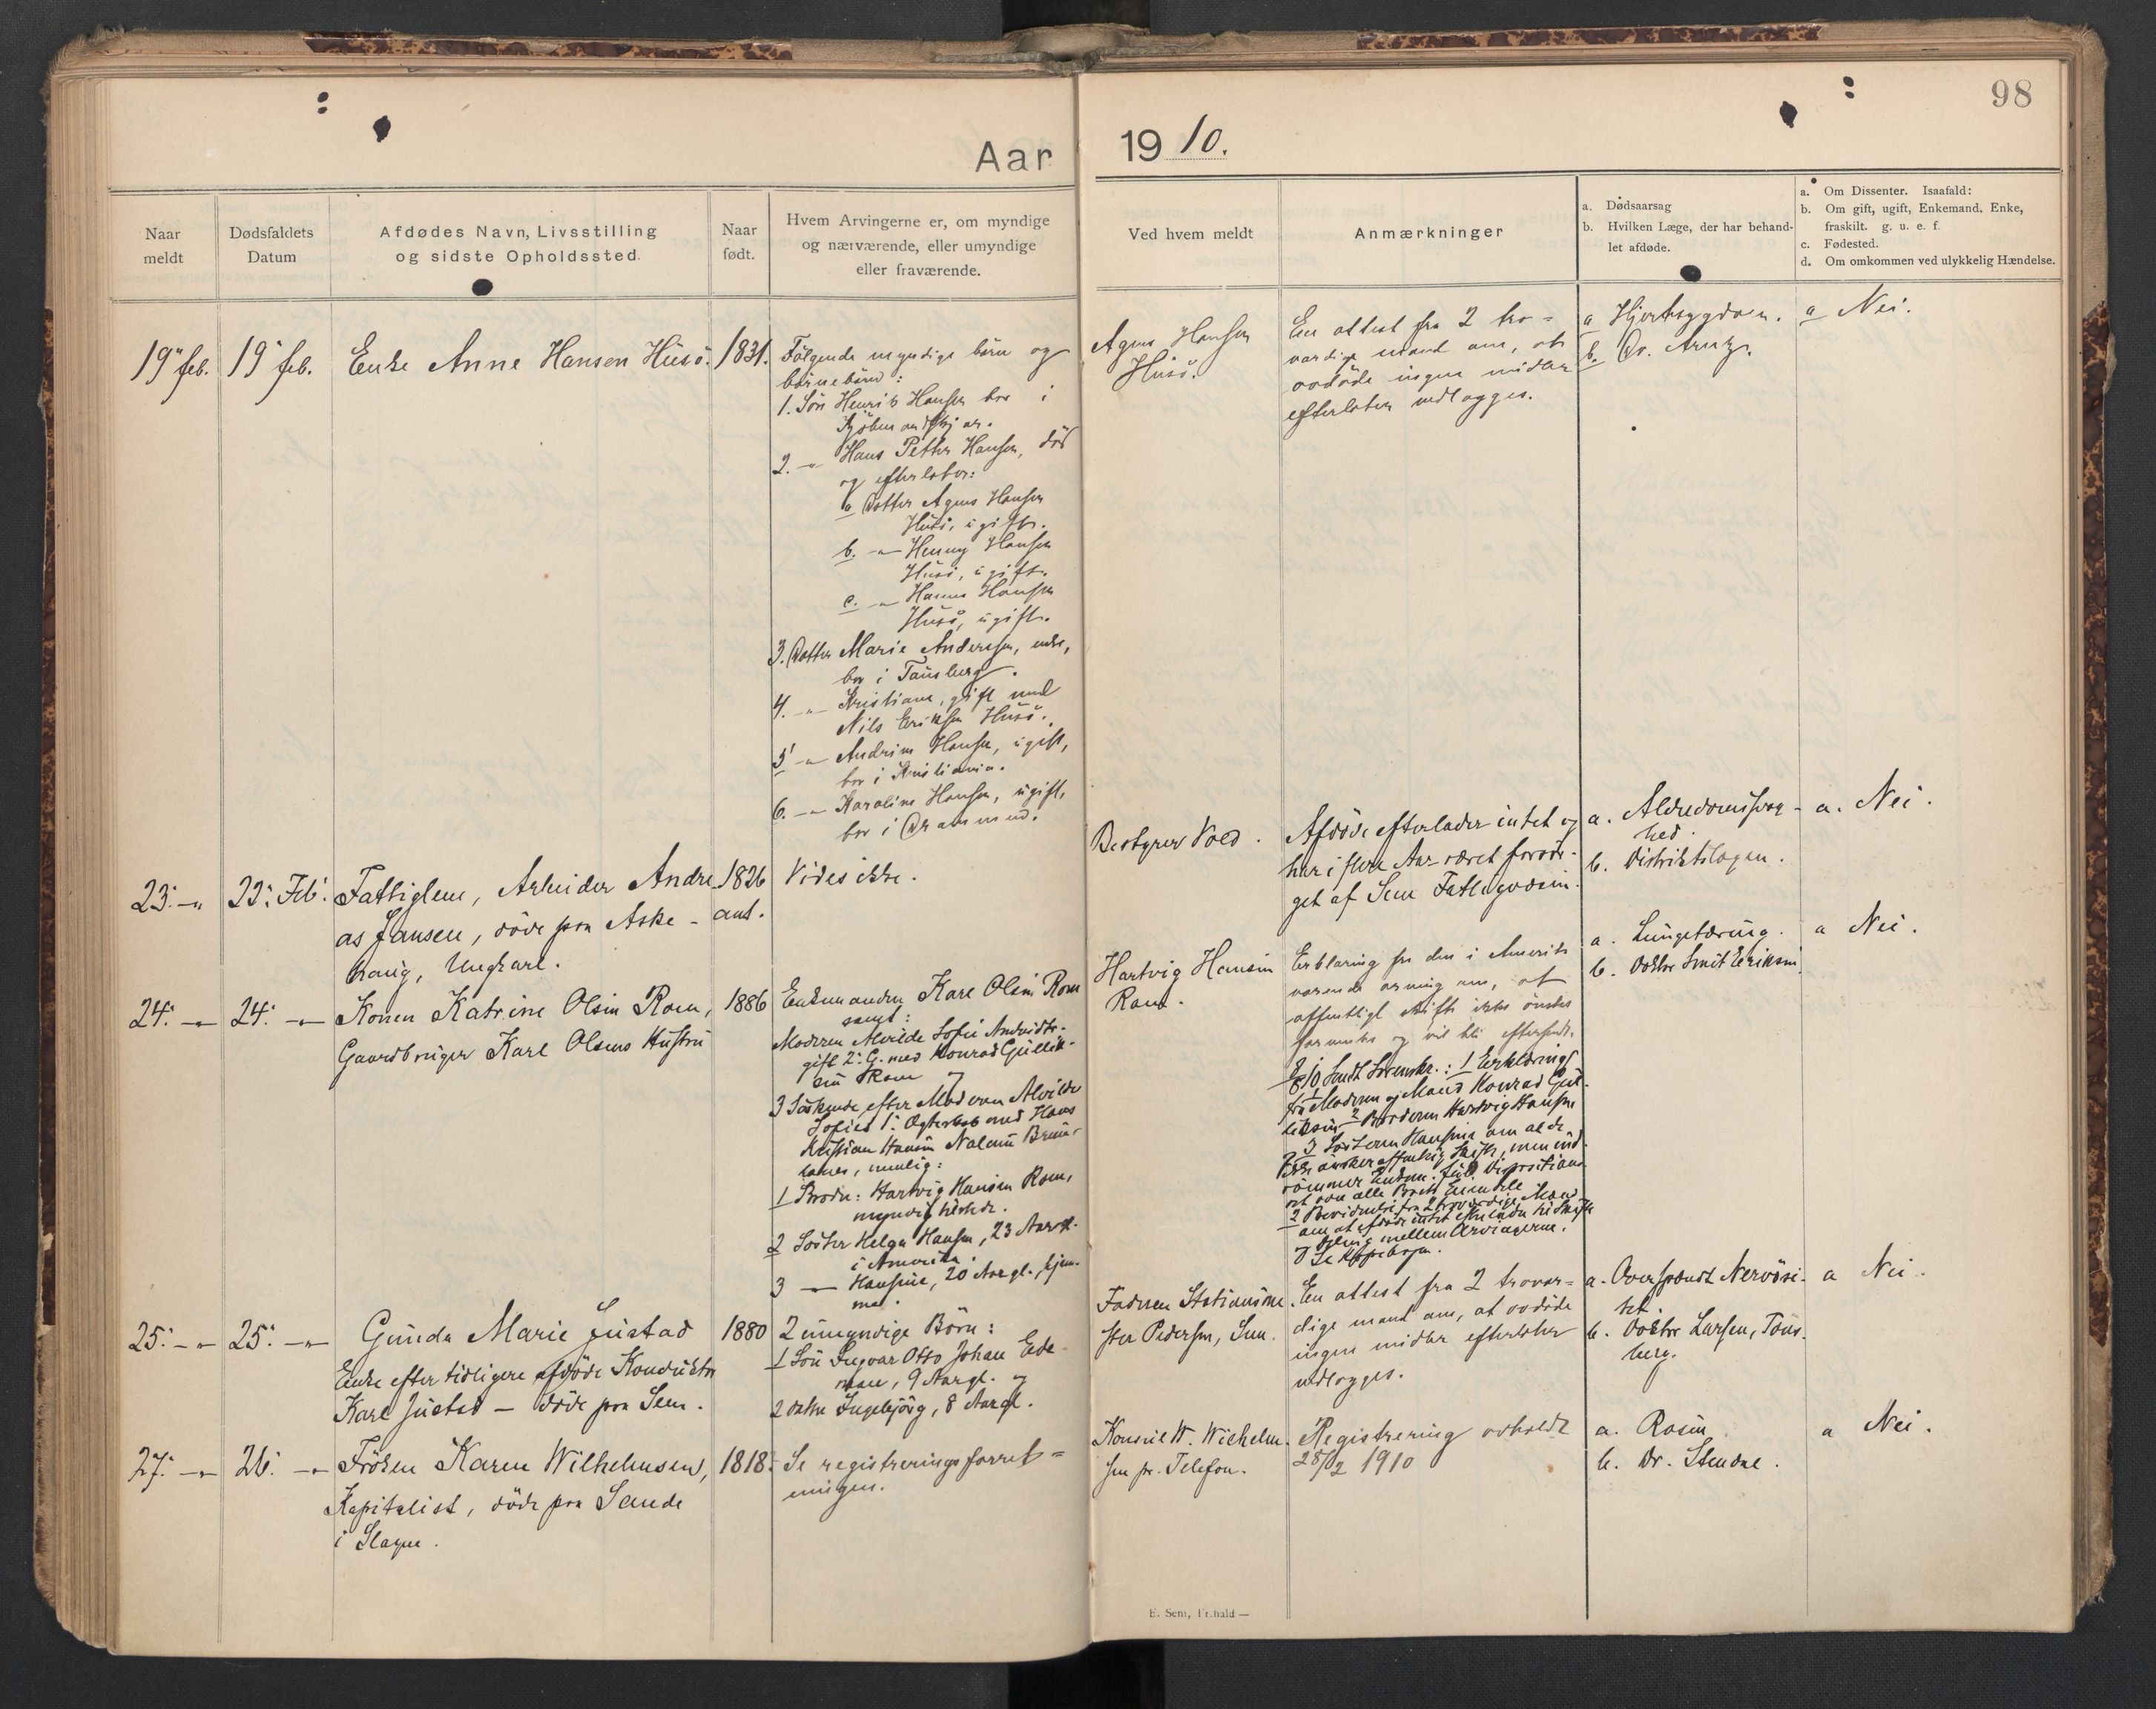 98
Aar 1910.
Naar
meldt
Dødsfaldets
Datum
Afdødes Navn, Livsstilling
og sidste Opholdssted.
Naar
født.
Hvem Arvingerne er, om myndige
og nærværende, eller umyndige
eller fraværende.
Ved hvem meldt
Anmærkninger
a. Dødsaarsag
b. Hvilken Læge, der har behand-
let afdøde.
a. Om Dissenter. Isaafald:
b. Om gift, ugift, Enkemand, Enke,
fraskilt. g. u. e. f.
c. Fødested.
d. Om omkommen ved ulykkelig Hændelse.
19 feb. 19 feb. Enke Anne Hansen Husö. 1831.
Følgende myndige børn og
børnebørn:
1. Søn Henrik Hansen bor i
2. -"- Hans Petter Hansen, död
og efterlater:
a Datter Agnes Hansen
Husö, ugift.
b. -"- Henny Hansen
Husö, ugift.
c. -"- Hanna Hansen
Husö, ugift.
3. Datter Marie Andersen, enke,
bor i Tønsberg.
4. -"- Kristiane, gift med
Nils Eriksen Husö.
5 -"- Andrine Hansen, ugift,
bor i Kristiania.
6. -"- Karoline Hansen, ugift,
bor i Drammen.
Agnes Hansen
Husö.
En attest fra 2 tro-
værdige mænd om, at
avdöde ingen midler
efterlater vedlægges.
a Hjertesygdom.
b. Dr. Arntz.
a Nei.
23. -"- 22. Feb. Fattiglem, Arbeider Andre- 1826
as Jansen, døde paa Aske- ant.
haug, Ungkarl.
Vides ikke.
Bestyrer Vold.
Afdøde efterlader intet og
har i flere Aar været forsør-
get af Sem Fattigvæsen.
a. Alderdomssvag-
hed.
b. Distriktslægen.
a. Nei.
24. -"- 24. -"- Konen Katrine Olsen Rom, 1886
Gaardbruger Karl Olsens Hustru
Enkemanden Karl Olsen Rom
samt:
Moderen Alvilde Sofie
gift 2. G. med Konrad Gullik-
sen Rom og
3 Søskende efter Moderen Alvilde
Sofies 1. Ægteskab med Hans
Kristian Hansen
nemlig:
1 Broder: Hartvig Hansen Rom,
2 Søster Helga Hansen, 23 Aar gl.
i Amerika.
3 — Hansine, 20 Aar gl., hjem-
me.
Hartvig Hansen
Rom.
Erklæring fra den i Amerika
værende arving om, at
offentligt skifte ikke önskes
og vil bli eftersendt.
fra Moderen og Mand Konrad Gul-
liksen 2 Broderen Hartvig Hansen
3 Søsteren Hansine om at de
ikke ønsker offentlig Skifte, men ind-
rømmer Enkem. fuld Disposition
over alle Boets Eiendele
2 Bevidnelse fra 2 troværdige Mænd
om at afdøde intet efterlader til Skifte
deling mellem Arvingerne.
Se Kopibogen.
a. Lungetæring.
b. Doktor Smit Eriksen.
a Nei.
25. -"- 25. -"- Gunda Marie Justad 1880
Enke efter tidligere afdøde Konduktør
Karl Justad — døde paa Sem.
2 umyndige Børn:
1 Søn Ingvar Otto Johan
9 Aar gl. og
2 datter Ingebjørg, 8 Aar gl.
Faderen Stationsme-
ster Pedersen, Sem.
En attest fra 2 trovær-
dige mænd om, at avdöde
ingen midler efterlater
vedlægges.
a. Overspændt Nervøsi-
tet.
b. Doktor Larsen, Tøns-
berg.
a Nei.
27. -"- 26. -"- Frøken Karen Wilhelmsen, 1818.
Kapitalist, døde paa Sande
i Slagen.
Se registreringsforret-
ningen.
Konsul W. Wilhelm-
sen pr. Telefon.
Registrering avholdt
28/2 1910
a. Rosen
b. Dr. Stendal.
a Nei.
E. Sem, Fr.hald —